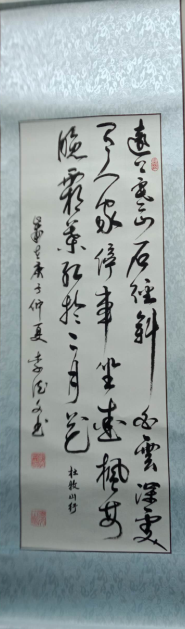 遠上寒山石徑斜白雲深處
有人家停車坐愛楓林
晚霜葉紅於二月花
杜牧山行
歲在庚子仲夏李書